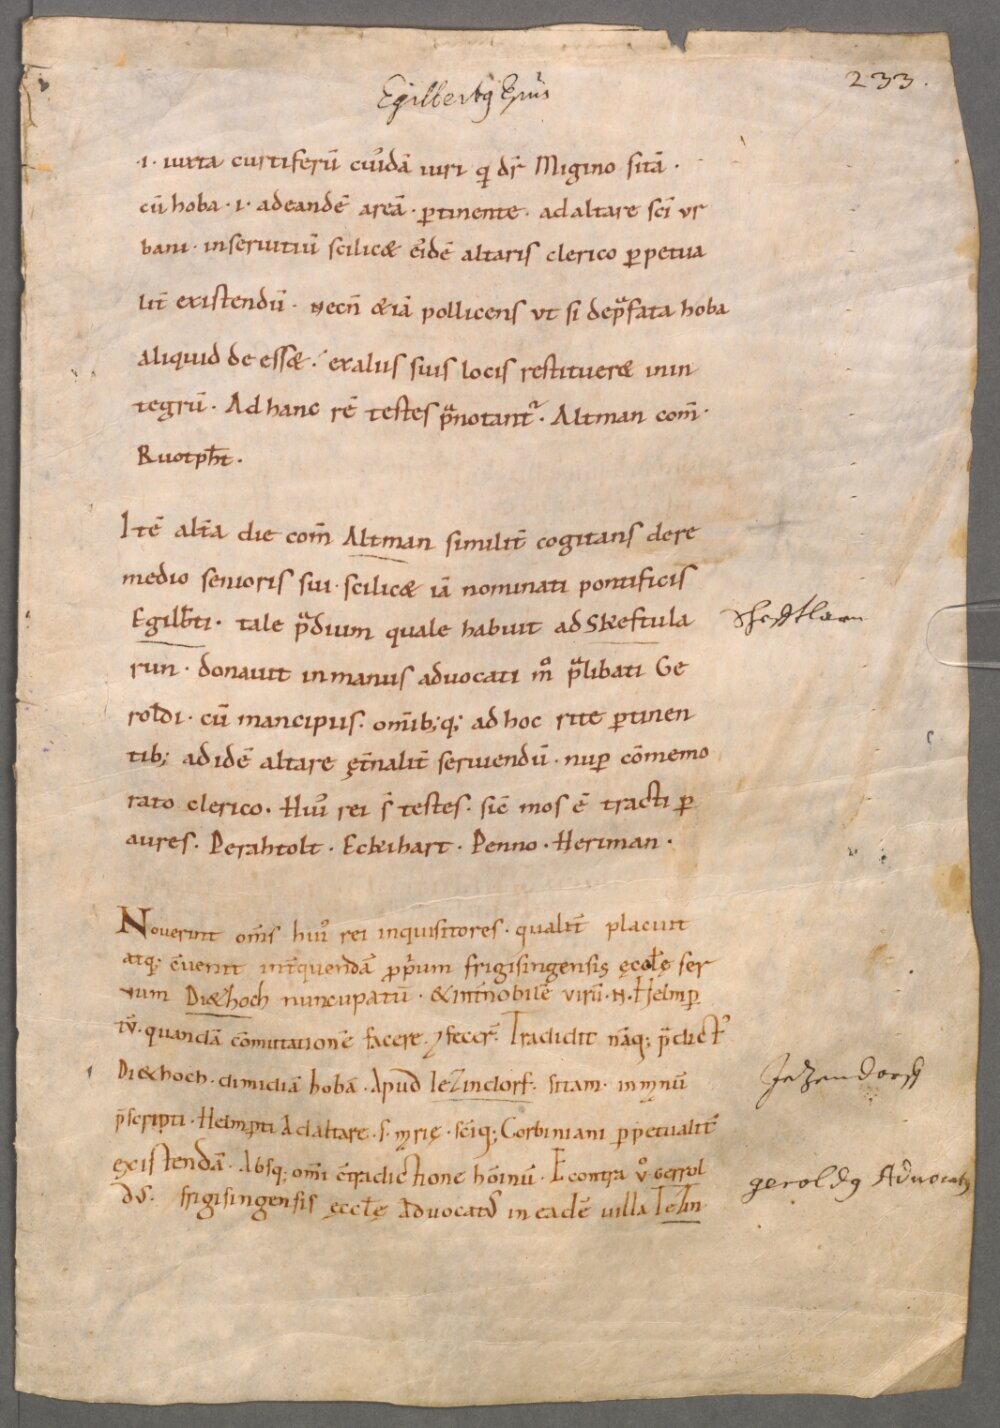 Egilbertꝯ Ep̃us
233.
·i· iuxta curtiferū cuiꝰdā iuri q̇ dr̄ Migino sitā ·
cū hoba · i · ad eandē areā · ꝑtinente · ad altare sc̄i vr
bani · in seruitiū scilicæ eiꝰdē altaris clerico ꝑpetua
lit̄ existendū · necn̄ & iā pollicens ut si de p̄fata hoba
aliquid de essæ · ex aliis suis locis restitueræ in in
tegrū · Ad hanc rē testes p̄notant᷑ · Altman com̄ ·
Ruotpħt ·
Itē alt̄a die com̄ Altman similit̄ cogitans de re
medio senioris sui · scilicæ iā nominati pontificis
Egilb̄ti · tale p̄dium quale habuit ad Skeftula
run · donauit in manus advocati m̊ p̄libati Ge
roldi · cū mancipiis · om̄ib;q; ad hoc rite ꝑtinen
tib; ad idē altare ęt̄nalit̄ seruiendū · nuꝑ cōmemo
rato clerico · Huiꝰ rei s̄ testes · sic̄ mos ē tracti ꝑ
aures · Perahtolt · Eckihart · Penno · Heriman ·
Nouerint om̄s huiꝰ rei inquisitores · qualit̄ placuit
atq; c̄uenit int̄ quendā ꝓp̄ium frigisingensis ęccl̄ę ser
uum Di&hoch nuncupatū · & int̄ nobilē virū · N · Helmꝑ
tū · quandā cōmutationē facere · ⁊ fecer̄ · Tradidit nāq; p̄dictꝰ
Di&hoch · dimidiā hobā · Apud Iezindorf · sitam · in manū
p̄scripti · Helmꝑti Ad altare · s · marię · sc̄iq; Corbiniani ꝑpetualit̄
existendā · Absq; om̄i c̄tradictione hōinū · E contra v̊ Gerrol
dus · frigisingensis ęccl̄ę Aduocatus in eadē uilla Iezin
Schefftlarn
Jezendorff
geroldꝯ Advocatꝯ